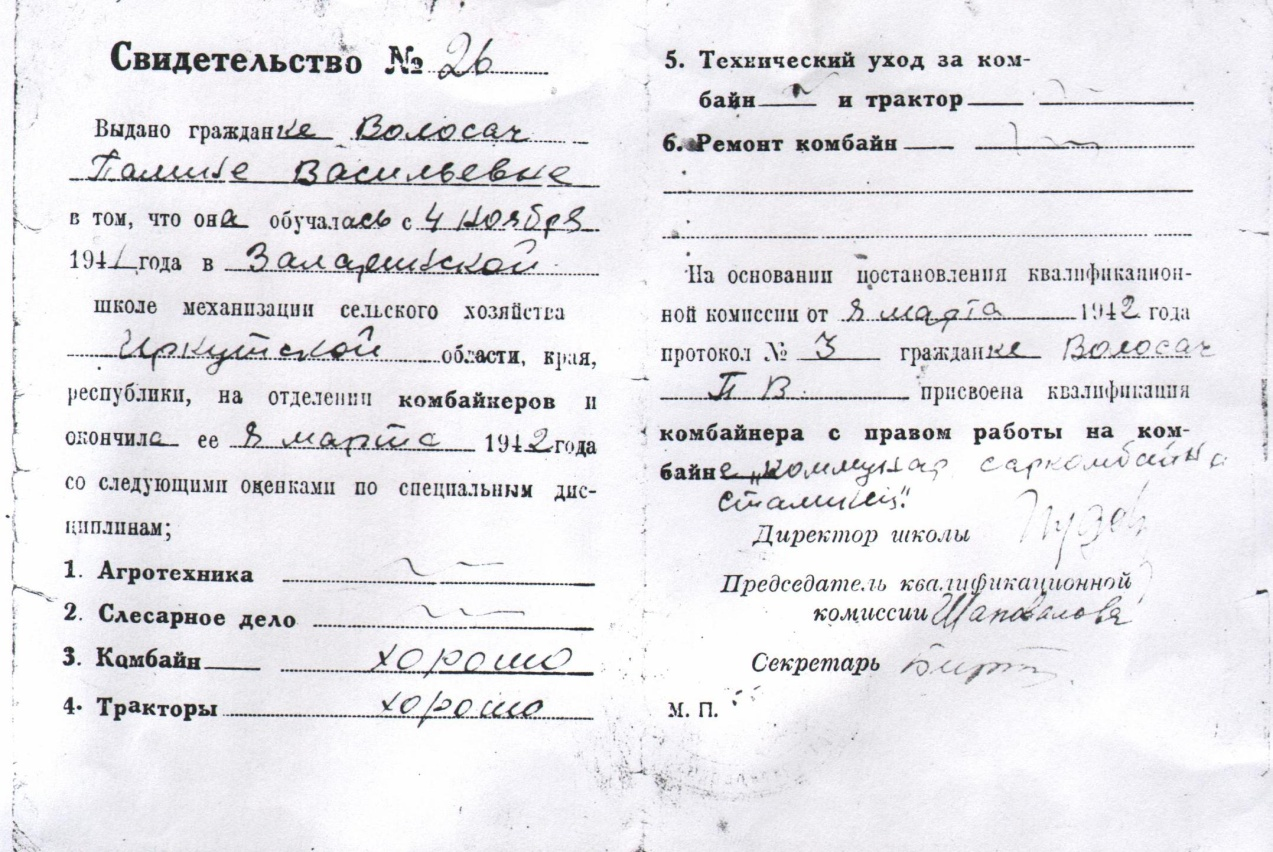 Свидетельство № 26
Выдано гражданке Волосач
Васильевне
в том, что она обучалась с 4 ноября
1941 года в Заларинской
школе механизации сельского хозяйства
Иркутской области, края,
республики, на отделении комбайнеров и
окончила ее 8 марта 1942 года
со следующими оценками по специальным дис-
циплинам;
1. Агротехника
2. Слесарное дело
3. Комбайн хорошо
4. Тракторы хорошо
5. Технический уход за ком-
байн и трактор
6. Ремонт комбайн
На основании постановления квалификацион-
ной комиссии от 8 марта 1942 года
протокол № 3 гражданке Волосач
П В присвоена квалификация
комбайнера с правом работы на ком-
байне „Коммунар саркомбайна
сталинец".
Директор школы
Председатель квалификационной
комиссии Шаповалова
Секретарь
М. П.